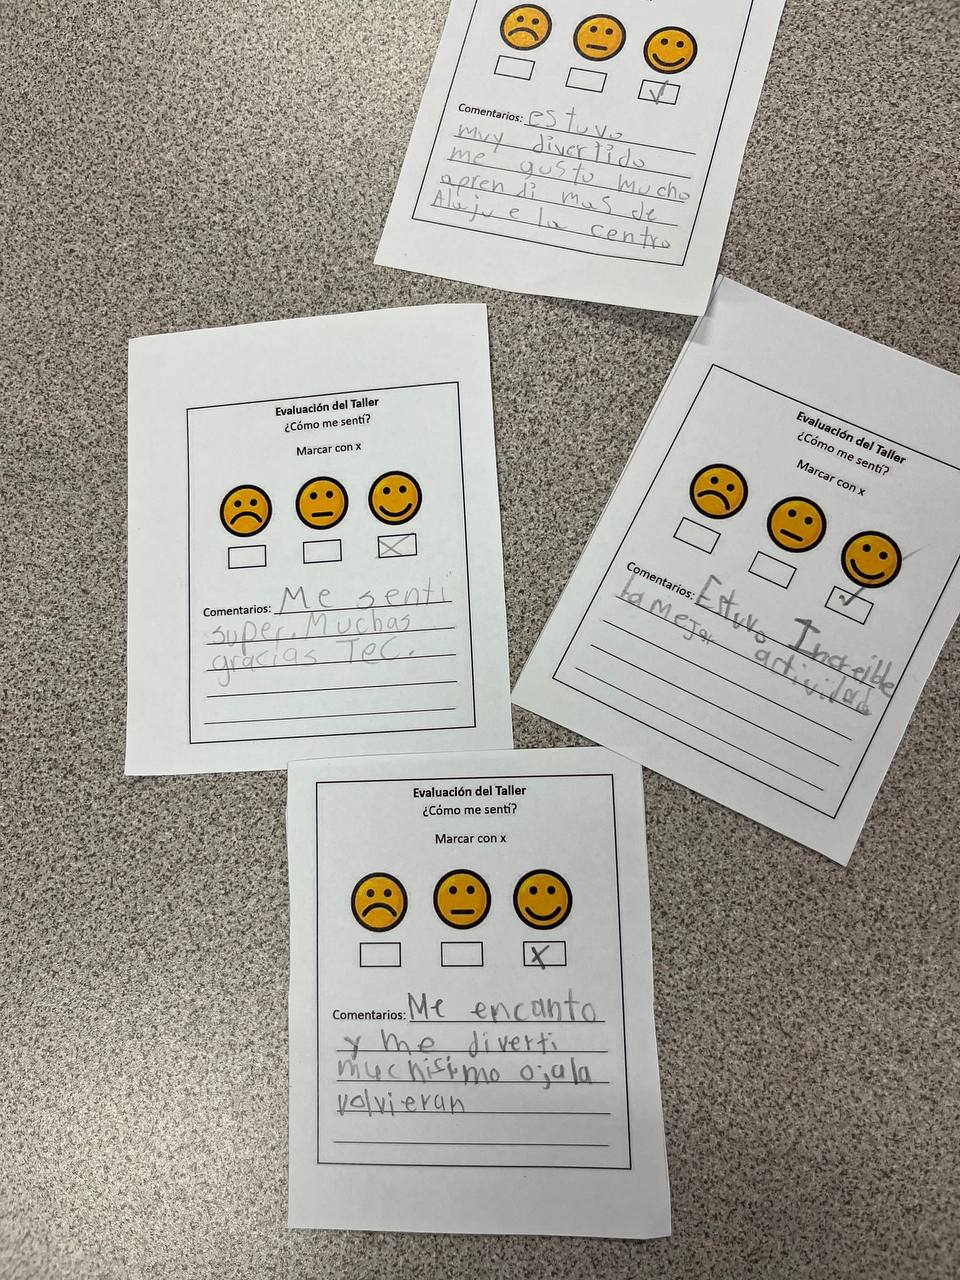 Comentarios: estuvo
muy divertido
me gusto mucho
aprendi mas de
e la centro
Evaluación del Taller
¿Cómo me sentí?
Marcar con x
X
Comentarios: Me senti
super. Muchas
gracias TEC.
Evaluación del Taller
¿Cómo me sentí?
Marcar con x
Comentarios: Estuvo Increible
la mejor actividad
Evaluación del Taller
¿Cómo me sentí?
Marcar con x
X
Comentarios: Me encanto
y me diverti
muchisimo ojala
volvieran